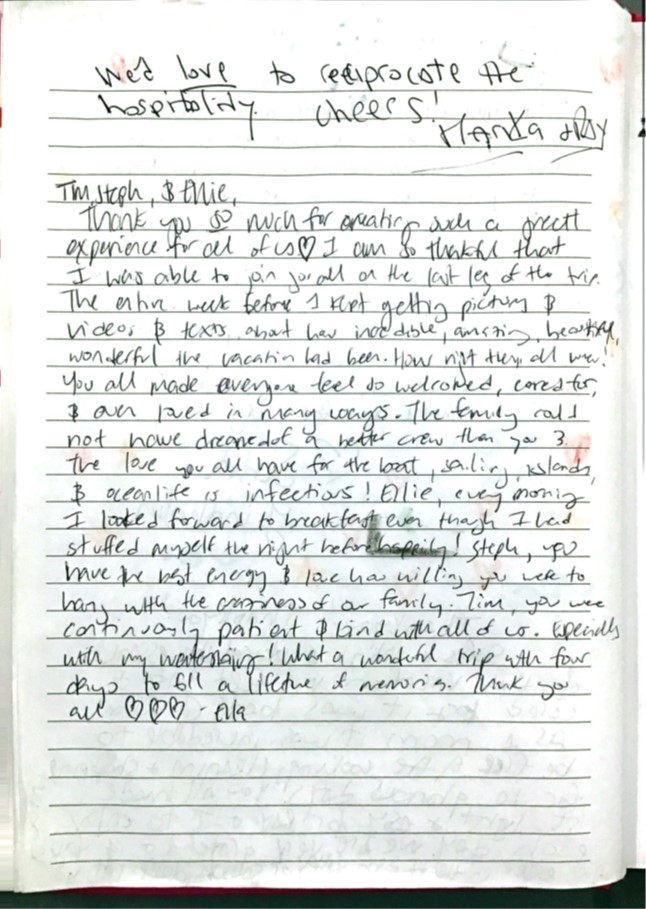 We'd love to reciprocate the
hospitality. Cheers!
& Roy
Tim, Steph, & Ellie,
Thank you so much for creating such a great
experience for all of us♡ I am so thankful that
I was able to join you all on the last leg of the trip.
The entire week before I kept getting pictures &
videos & texts about how incredible, amazing, beautiful,
wonderful the vacation had been. How right they all were!
You all made everyone feel so welcomed, cared for,
& even loved in many ways. The family could
not have dreamed of a better crew than you 3.
The love you all have for the boat, sailing, islands,
& ocean life is infectious! Ellie, every morning
I looked forward to breakfast even though I had
stuffed myself the night before happily! Steph, you
have the best energy & love how willing you were to
hang with the craziness of our family. Tim, you were
continuously patient & kind with all of us. Especially
with my waterskiing! What a wonderful trip with four
days to fill a lifetime of memories. Thank you
all ♡♡♡ - Ella